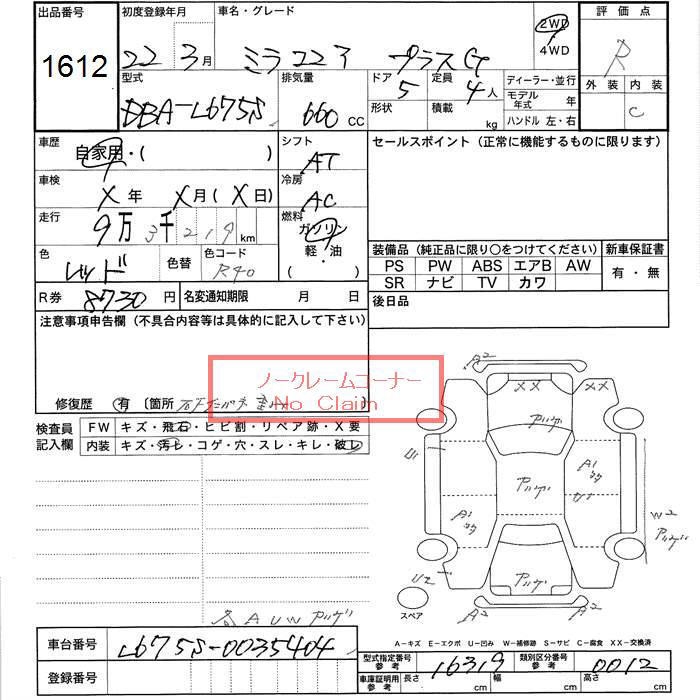 出品番号 初度登録年月 車名・グレード 2WD 4WD 評価点
1612 22 3月 ミラココア プラスG R
型式 排気量 ドア 定員 ディーラー・並行 外装 内装
DBA-L675S 660 CC 5 4人 モデル年式 年 C
形状 積載 kg ハンドル 左・右
車歴 自家用・( ) シフト AT セールスポイント(正常に機能するものに限ります)
車検 X年 X月(X日) 冷房 AC
走行 9万3千219km 燃料 ガソリン
色 レッド 色替 色コード R40 軽・油 ( )
装備品(純正品に限り○をつけてください) 新車保証書
PS PW ABS エアB AW 有・無
SR ナビ TV カワ
R券 8730円 名変通知期限 月 日 後日品
注意事項申告欄(不具合内容等は具体的に記入して下さい)
ノークレームコーナー
No Claim
修復歴 有 〔箇所
検査員記入欄 FW キズ・飛石・ヒビ割・リペア跡・X要
内装 キズ・汚レ・コゲ・穴・スレ・キレ・破レ
A2
XX XX
アツゲ
U1 A1 U1
アツゲ
A1 W2
アツゲ
U2 アツゲ
スペア A2 A2
各AUWアツゲ
A-キズ E-エクボ U-凹み W-補修跡 S-サビ C-腐食 XX-交換済
車台番号 L675S-0035404
型式指定番号参考 16319 類別区分番号参考 0012
登録番号
車庫証明用参考 長さ cm 幅 cm 高さ cm